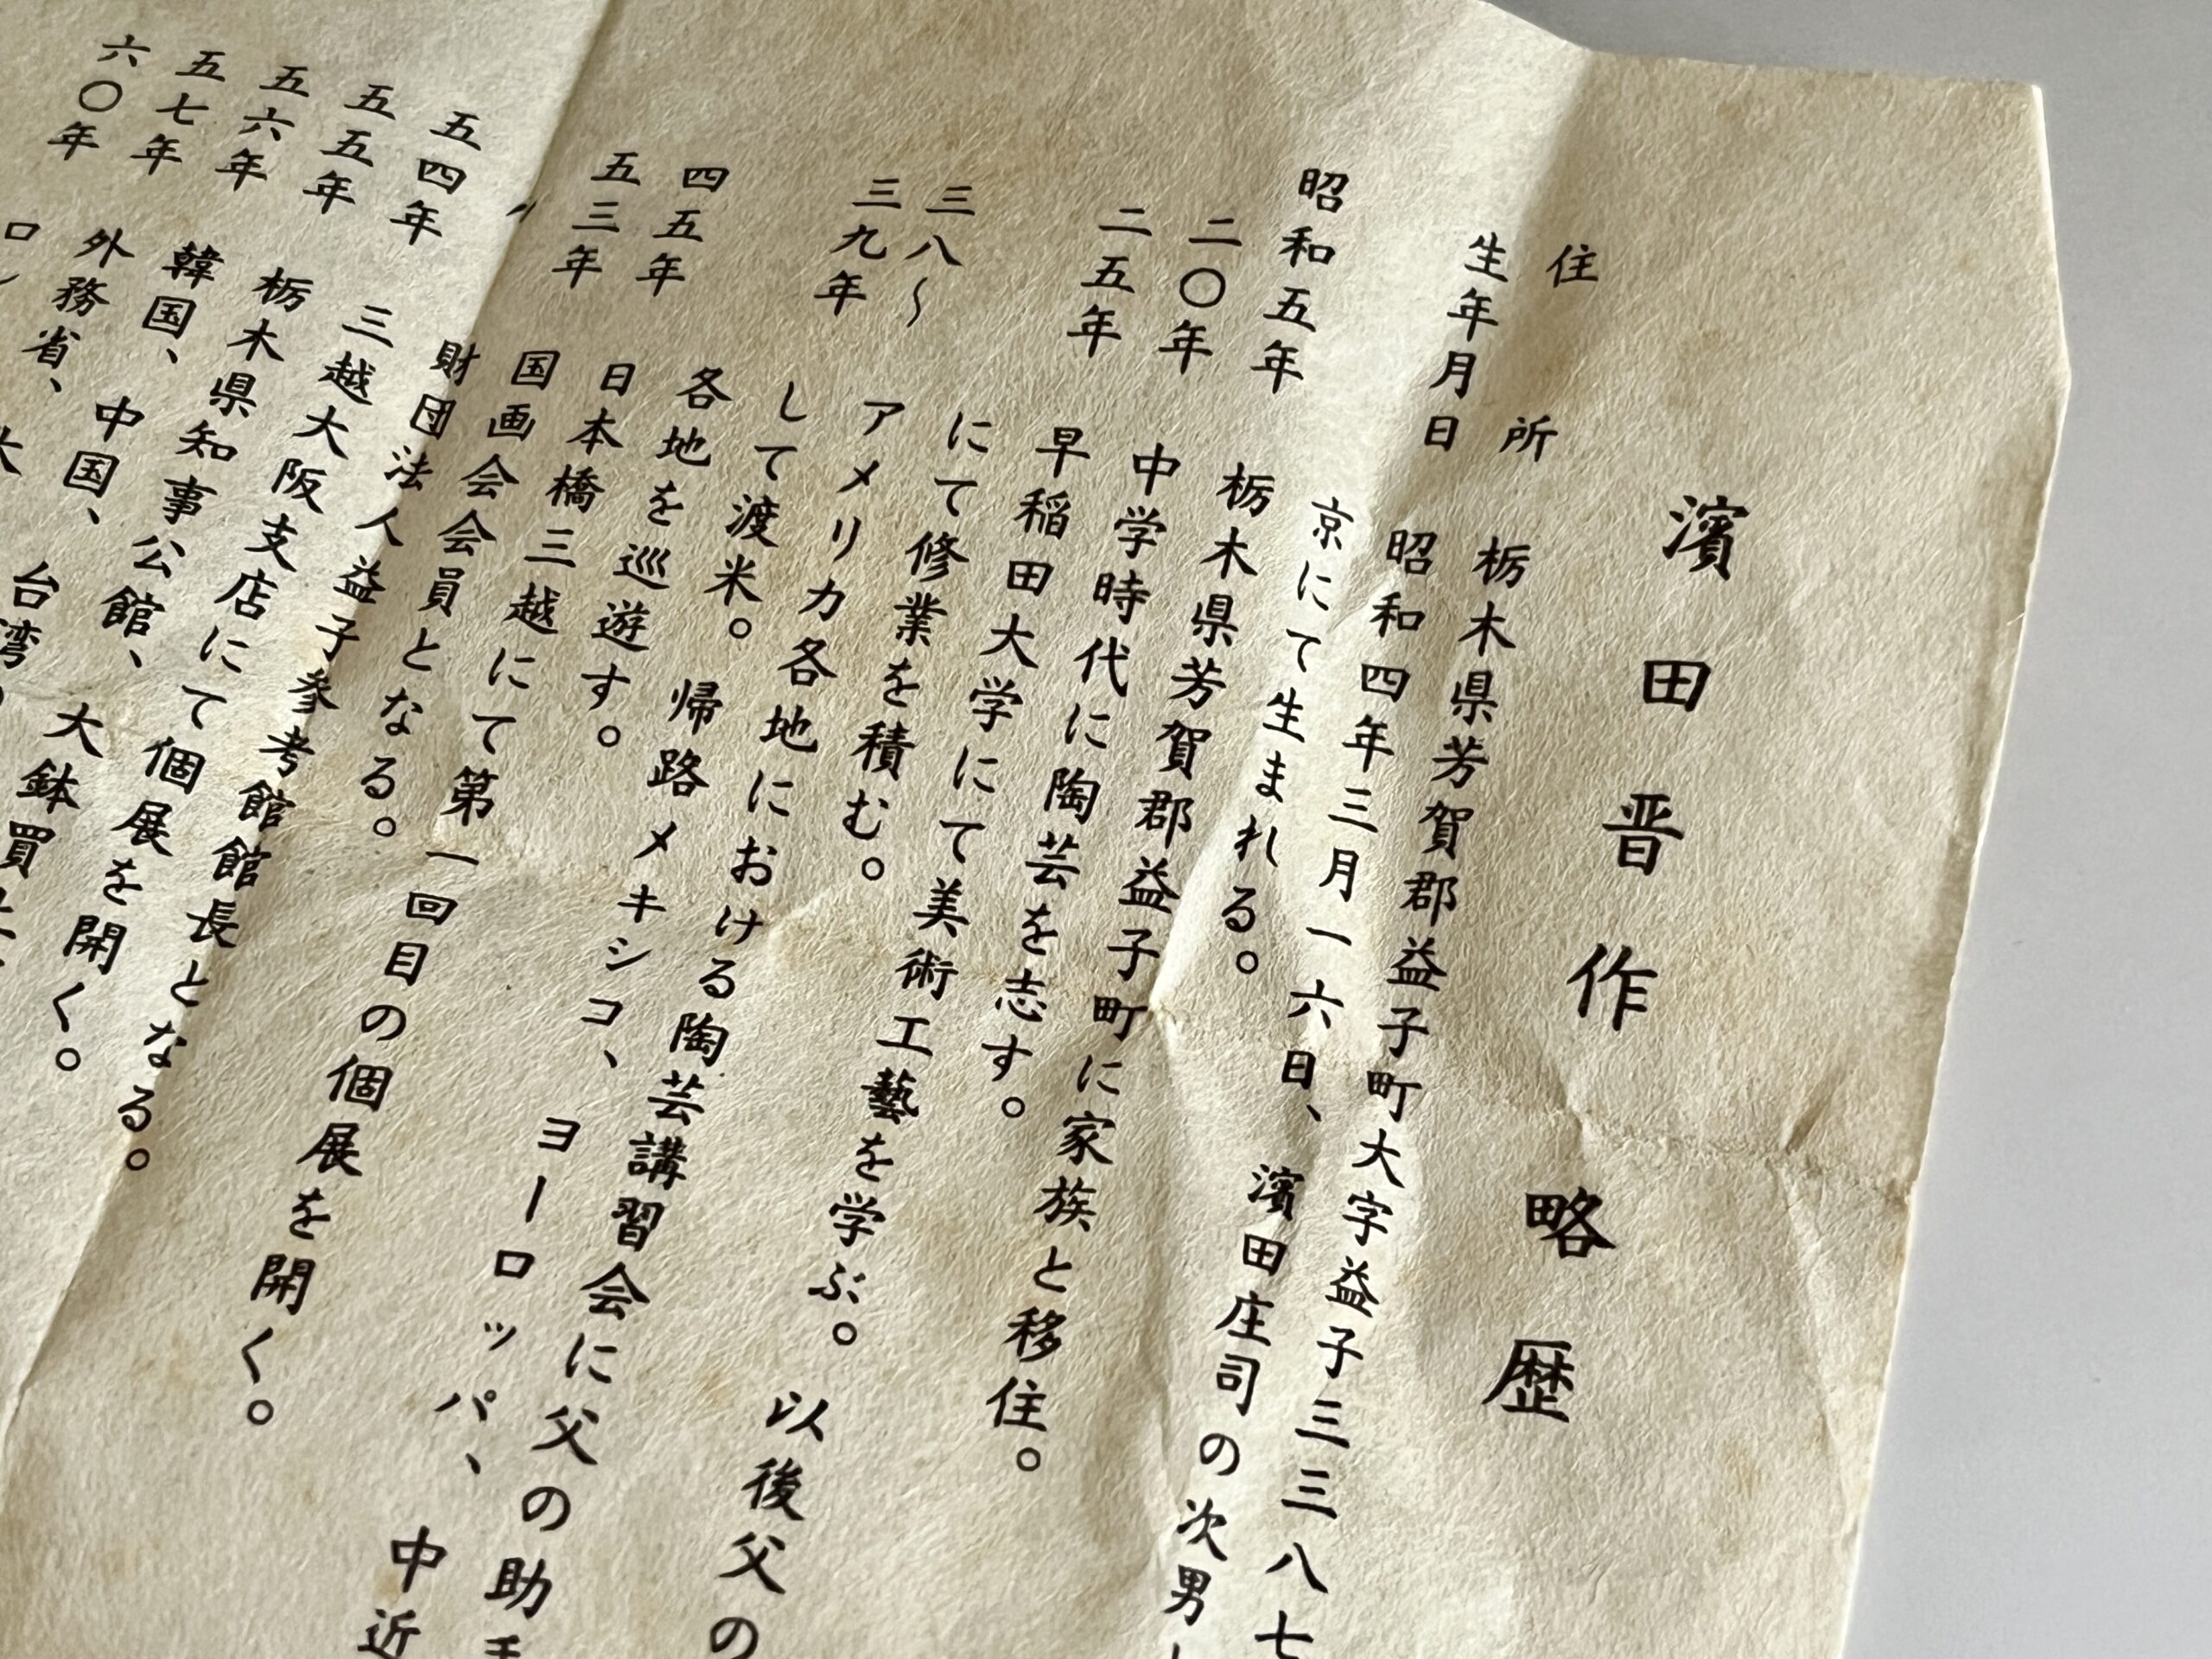 濱田晋作 略歴
住所 栃木県芳賀郡益子町大字益子三三八七
生年月日 昭和四年三月一六日、濱田庄司の次男
京にて生まれる。
昭和五年 栃木県芳賀郡益子町に家族と移住。
二〇年 中学時代に陶芸を志す。
二五年 早稲田大学にて美術工藝を学ぶ。以後父の
にて修業を積む。
三八〜 アメリカ各地における陶芸講習会に父の助
三九年 して渡米。帰路メキシコ、ヨーロッパ、中近
各地を巡遊す。
四五年 日本橋三越にて第一回目の個展を開く。
五三年 国画会会員となる。
〃 財団法人益子参考館館長となる。
五四年 三越大阪支店にて個展を開く。
五五年 栃木県知事公館、大鉢買
五六年 韓国、中国、台湾
五七年 外務省、
六〇年 ロ